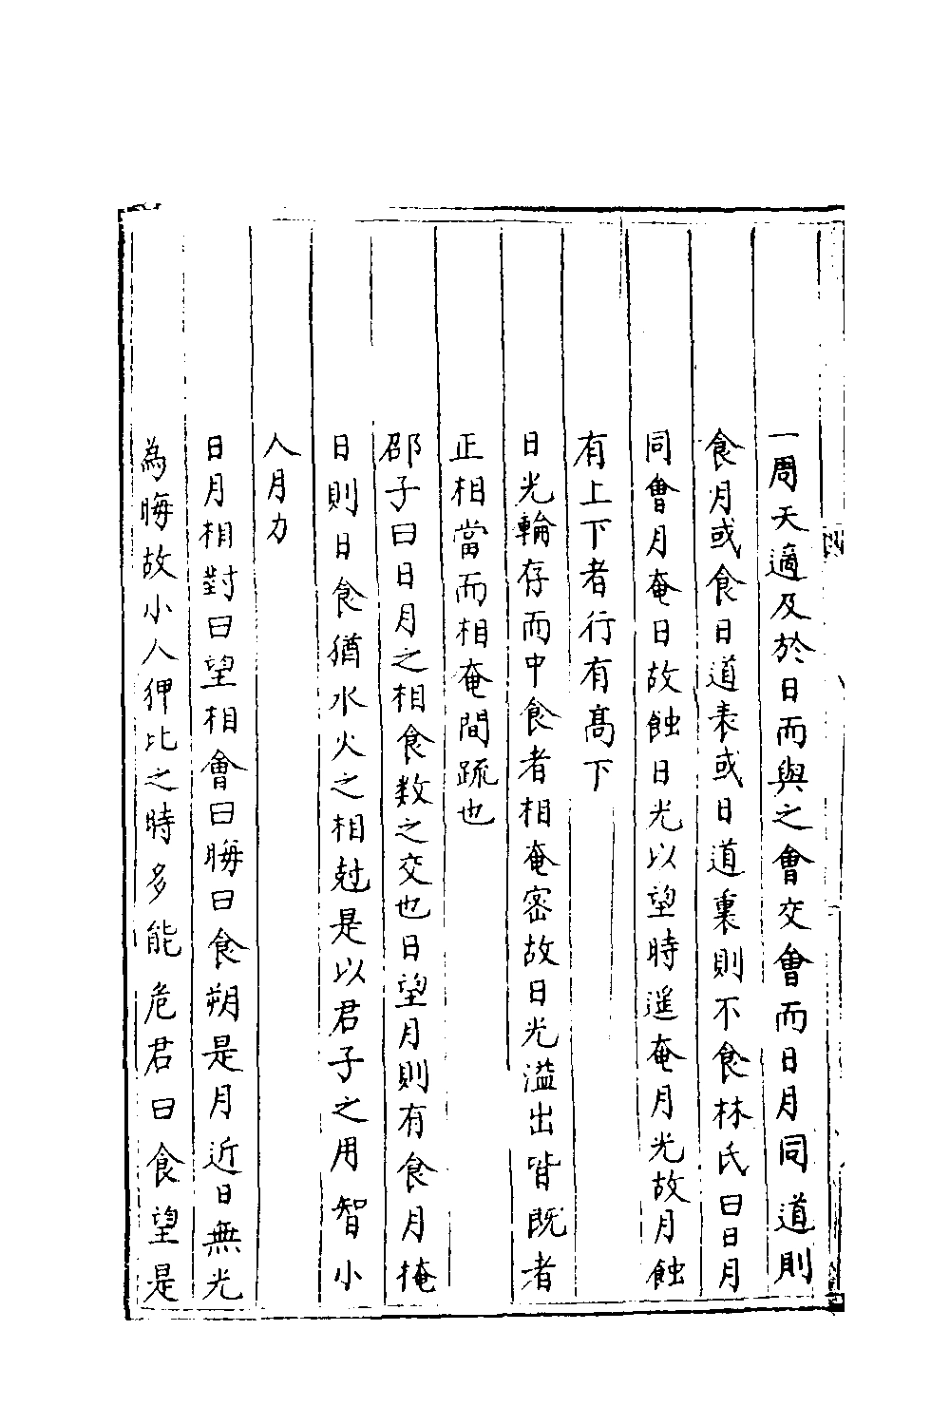 一周天適及於日而與之會交會而日月同道則
食月或食日道表或日道裏則不食林氏曰日月
同會月奄日故蝕日光以望時遥奄月光故月蝕
有上下者行有髙下
日光輪存而中食者相奄密故日光溢出皆既者
正相當而相奄間疏也
邵子曰日月之相食数之交也日望月則有食月掩
日則日食猶水火之相尅是以君子之用智小
人月力
日月相對曰望相會曰晦日食朔是月近日無光
為晦故小人狎比之時多能危君日食望是